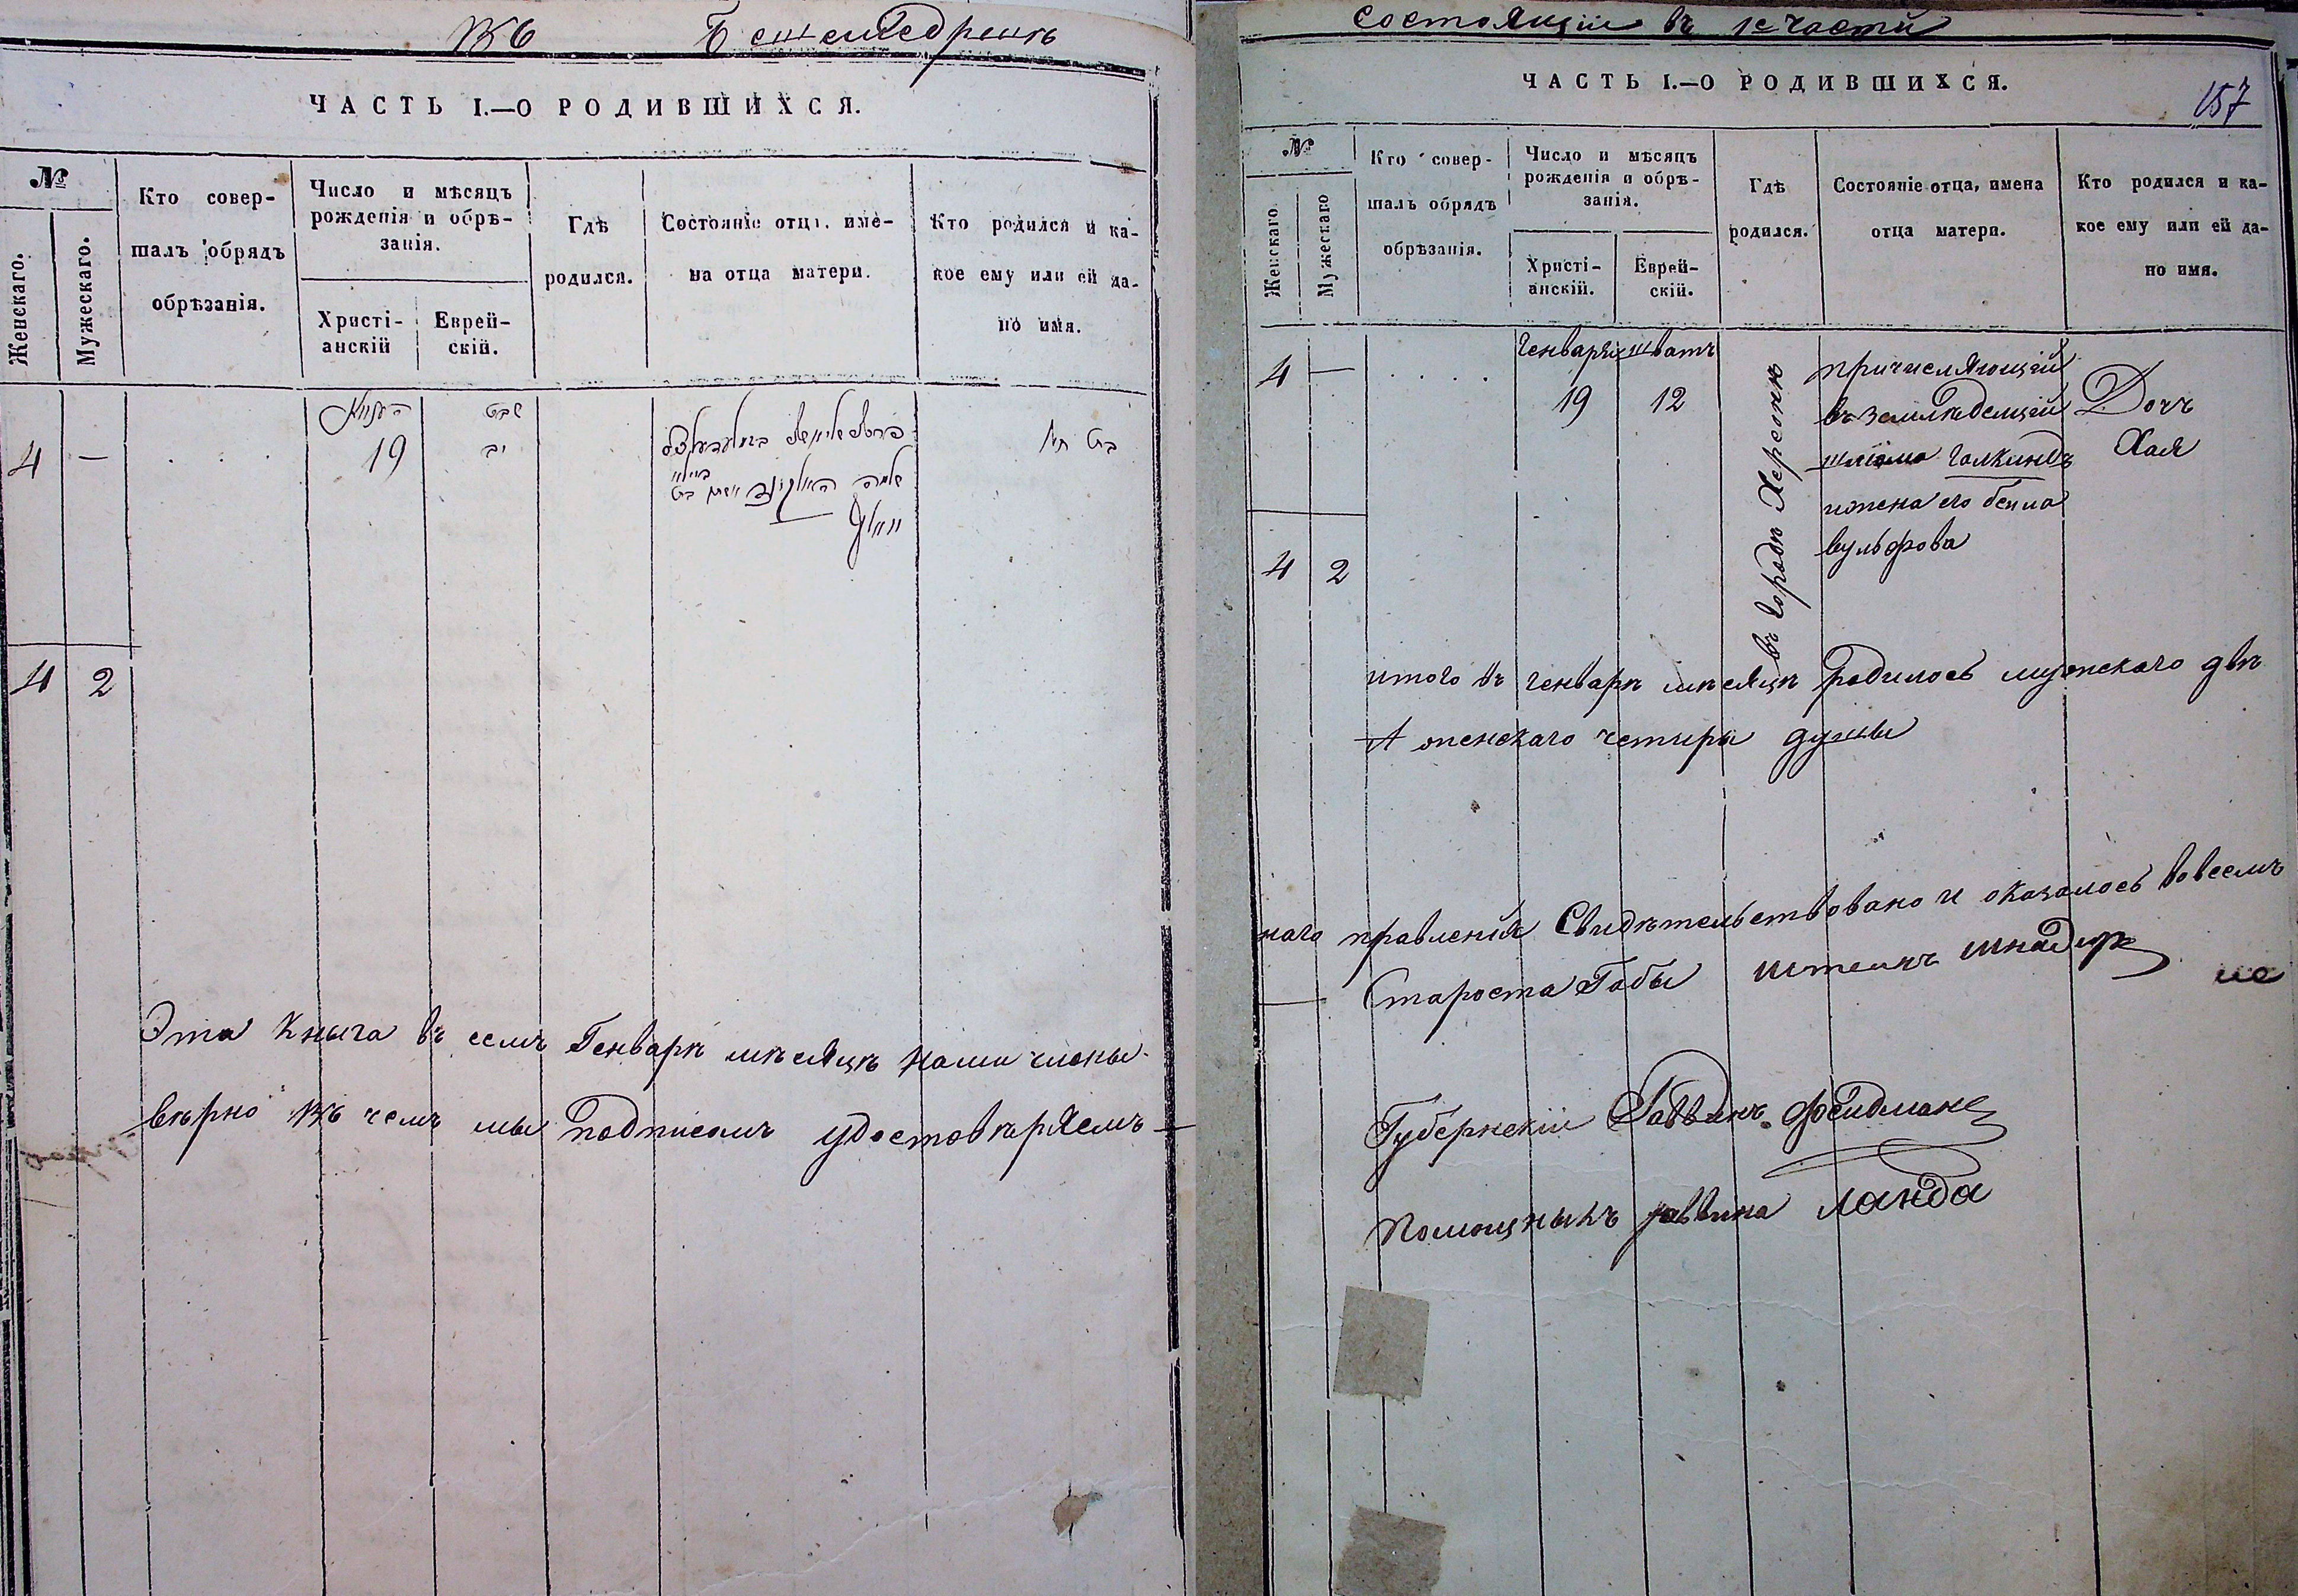 въ Бешемедрешъ
ЧАСТЬ I.—О РОДИВШИХСЯ.
№
Женскаго.
Мужескаго.
Кто совер-
шалъ обрядъ
обрѣзанія.
Число и мѣсяцъ
рожденія и обрѣ-
занія.
Христі-
анскій
Еврей-
скій.
Гдѣ
родился.
Состояніе отца, име-
на отца матери.
Кто родился и ка-
кое ему или ей да-
но имя.
שבט
4 — . . . 19 יב
בת חי'
4 2
Эта кныга въ семъ Генварѣ мѣсяцѣ нами члены
вѣрно въ чемъ мы подписомъ удостовѣряемъ —
состоящіи въ 1й части
ЧАСТЬ I.—О РОДИВШИХСЯ.
157
№
Женскаго.
Мужескаго
Кто совер-
шалъ обрядъ
обрѣзанія.
Число и мѣсяцъ
рожденія и обрѣ-
занія.
Христі-
анскій.
Еврей-
скій.
Гдѣ
родился.
Состояніе отца, имена
отца матери.
Кто родился и ка-
кое ему или ей да-
но имя.
Генваря шватъ
4 — . . . . 19 12
въ городѣ Херсонѣ
причисляющій
въ земледелцій
шліома Галкиндъ
ижена его бейла
вульфова
Дочъ
Хая
4 2
итого въ генварѣ мѣсяцѣ родилось мужскаго двѣ
А женскаго четыри душы
наго правленія Свидѣтельствовано и оказалось вовсемъ
Староста Габы
Губернскій Раввинъ Фейдман
Помощныкъ раввина Ланда